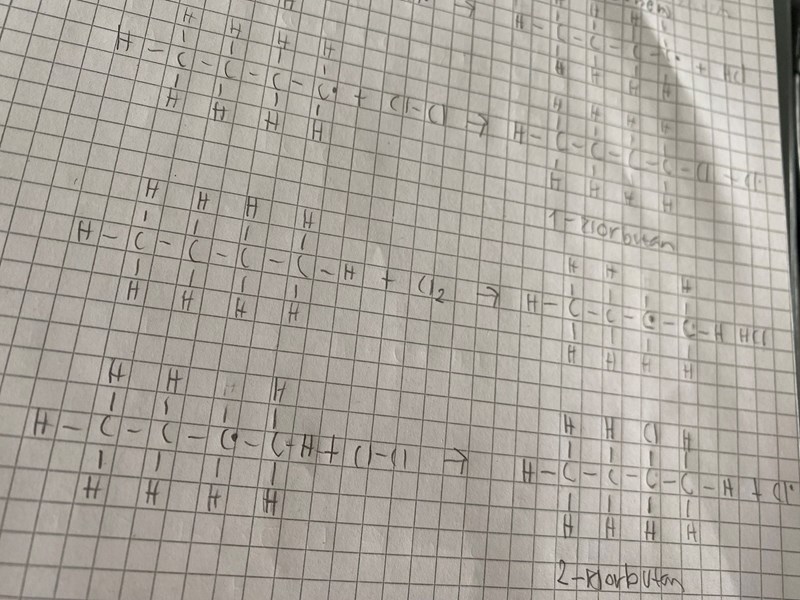 H H H H
H - C - C - C - C• + Cl-Cl →
H H H H
H - C - C - C - C• + HCl
H H H H
H H H H
H - C - C - C - C - Cl + Cl•
H H H H
1-klorbutan
H H H H
H - C - C - C - C - H + Cl2 →
H H H H
H H H
H - C - C - C• - C - H HCl
H H H H
H H H
H - C - C - C• - C - H + Cl-Cl →
H H H H
H H Cl H
H - C - C - C - C - H + Cl•
H H H H
2-klorbutan